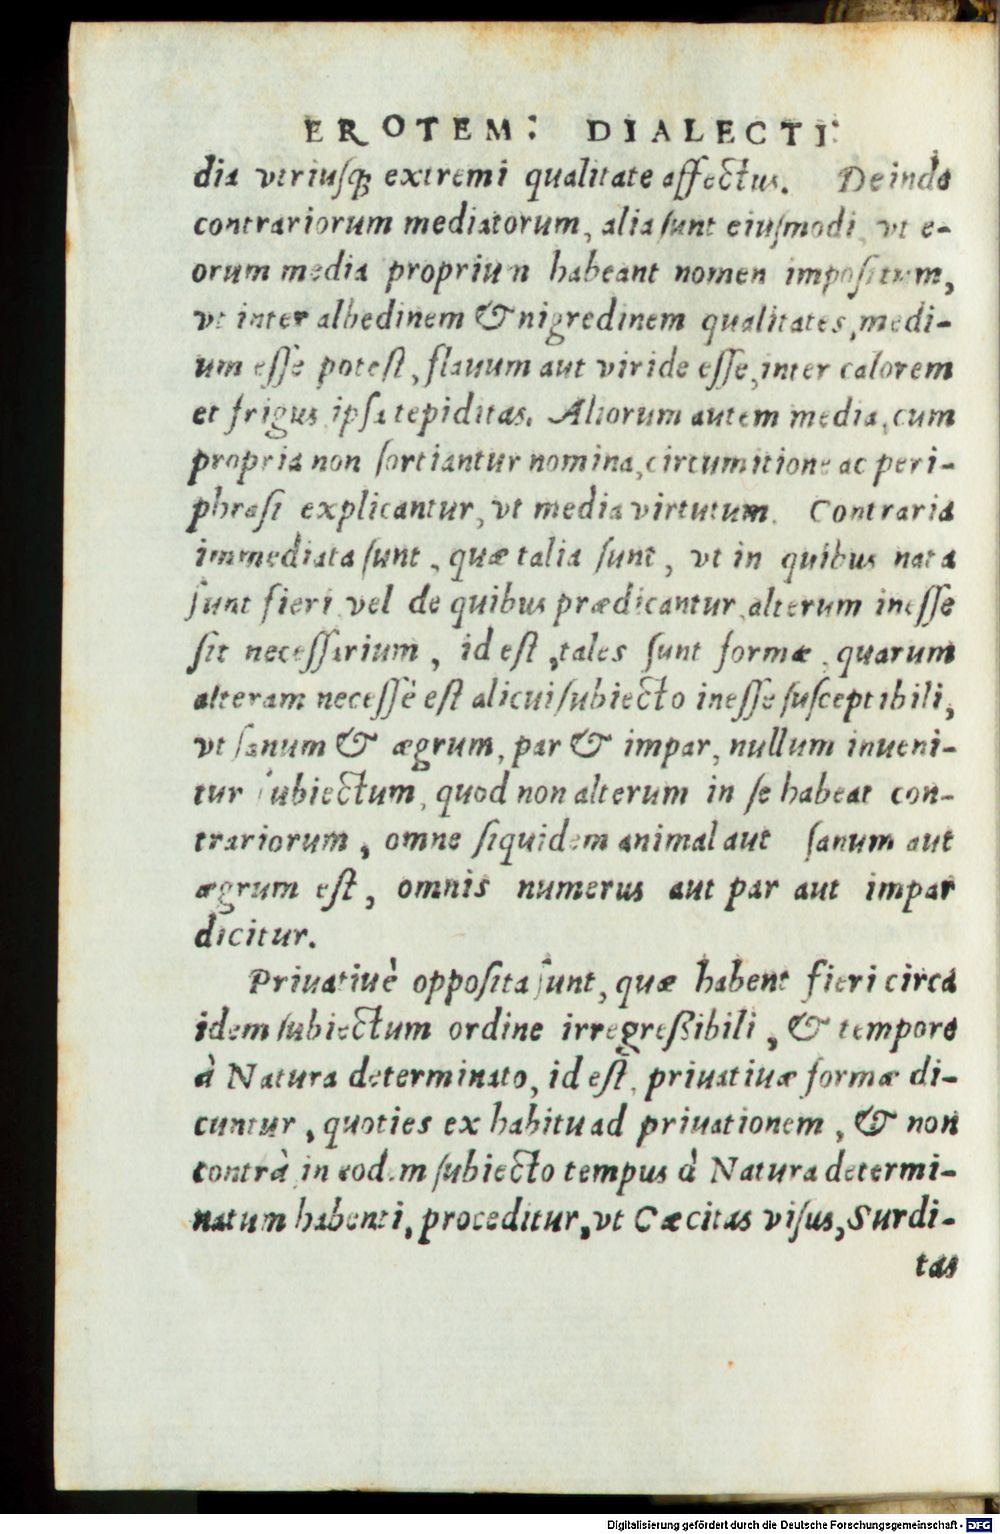 EROTEM: DIALECTI:
dia vtriusq́ꝫ extremi qualitate affectus. Deinde
contrariorum mediatorum, alia sunt eiusmodi, vt e-
orum media proprium habeant nomen impositum,
vt inter albedinem & nigredinem qualitates, medi-
um esse potest, flauum aut viride esse, inter calorem
et frigus ipsa tepiditas. Aliorum autem media, cum
propria non sortiantur nomina, circumitione ac peri-
phrasi explicantur, vt media virtutum. Contraria
immediata sunt, quæ talia sunt, vt in quibus nata
sunt fieri vel de quibus prædicantur, alterum inesse
sit necessarium, id est, tales sunt formæ, quarum
alteram necessè est alicui subiecto inesse susceptibili,
vt sanum & ægrum, par & impar, nullum inueni-
tur subiectum, quod non alterum in se habeat con-
trariorum, omne siquidem animal aut sanum aut
ægrum est, omnis numerus aut par aut impar
dicitur.
Priuatiuè opposita sunt, quæ habent fieri circa
idem subiectum ordine irregreßibili, & tempore
à Natura determinato, id est, priuatiuæ formæ di-
cuntur, quoties ex habitu ad priuationem, & non
contrà in eodem subiecto tempus à Natura determi-
natum habenti, proceditur, vt Cæcitas visus, Surdi-
tas
Digitalisierung gefördert durch die Deutsche Forschungsgemeinschaft - DFG